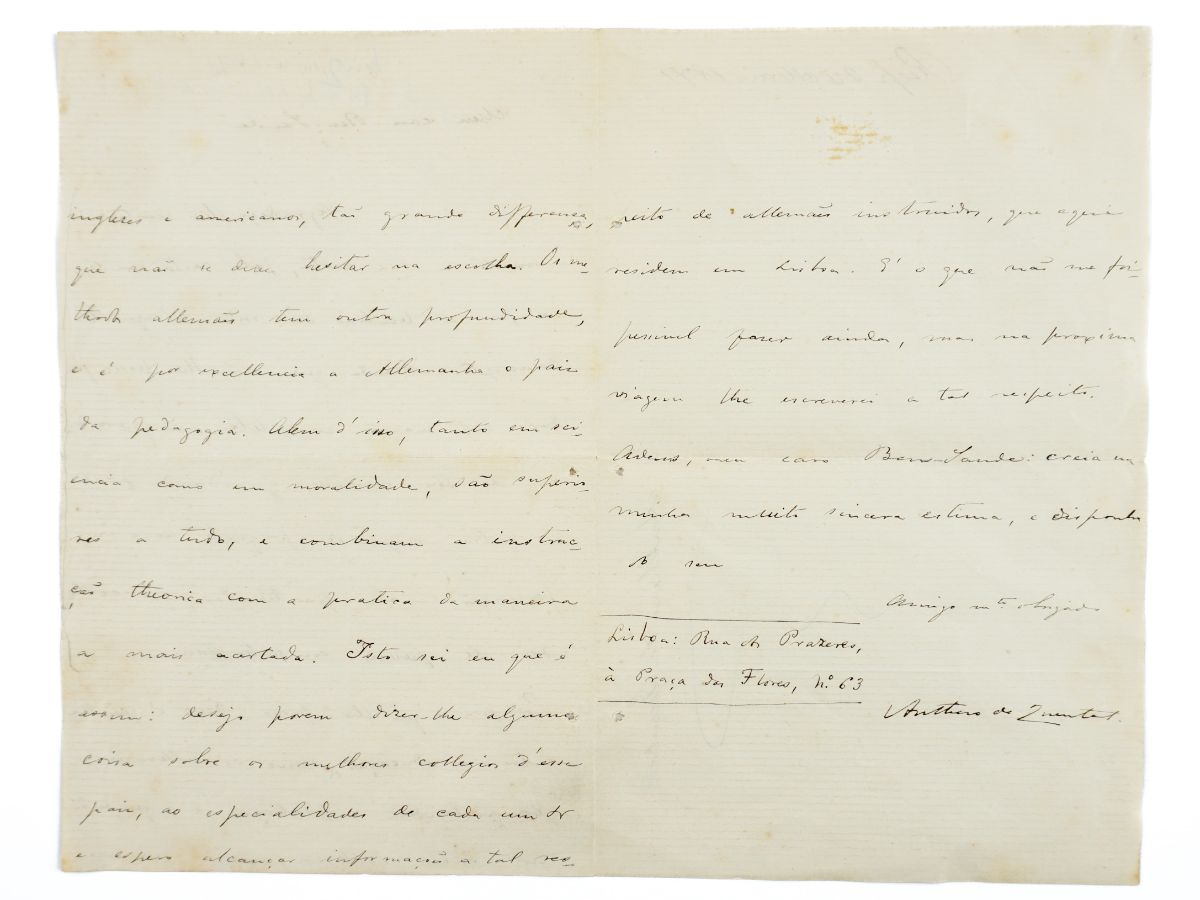 inglezes e americanos, tão grande differença,
que não se deve hesitar na escolha. Os me-
thodos allemães tem outra profundidade,
e é por excellencia a Allemanha o paiz
da pedagogia. Alem d'isso, tanto em sci-
encia como em moralidade, são superio-
res a tudo, e combinam a instruc-
ção theorica com a pratica da maneira
a mais acertada. Isto sei eu que é
assim: desejo porem dizer-lhe alguma
coisa sobre os melhores collegios d'esse
paiz, as especialidades de cada um &
e espero alcançar informações a tal res-
peito de allemães instruidos, que aqui
residem em Lisboa. É o que não me foi
possivel fazer ainda, mas na proxima
viagem lhe escreverei a tal respeito.
Adeus, meu caro Ben-Saude: creia na
minha muito sincera estima, e disponha
do seu
Amigo mto. obrigado
Lisboa: Rua dos Prazeres,
à Praça das Flores, Nº 63
Anthero de Quental.